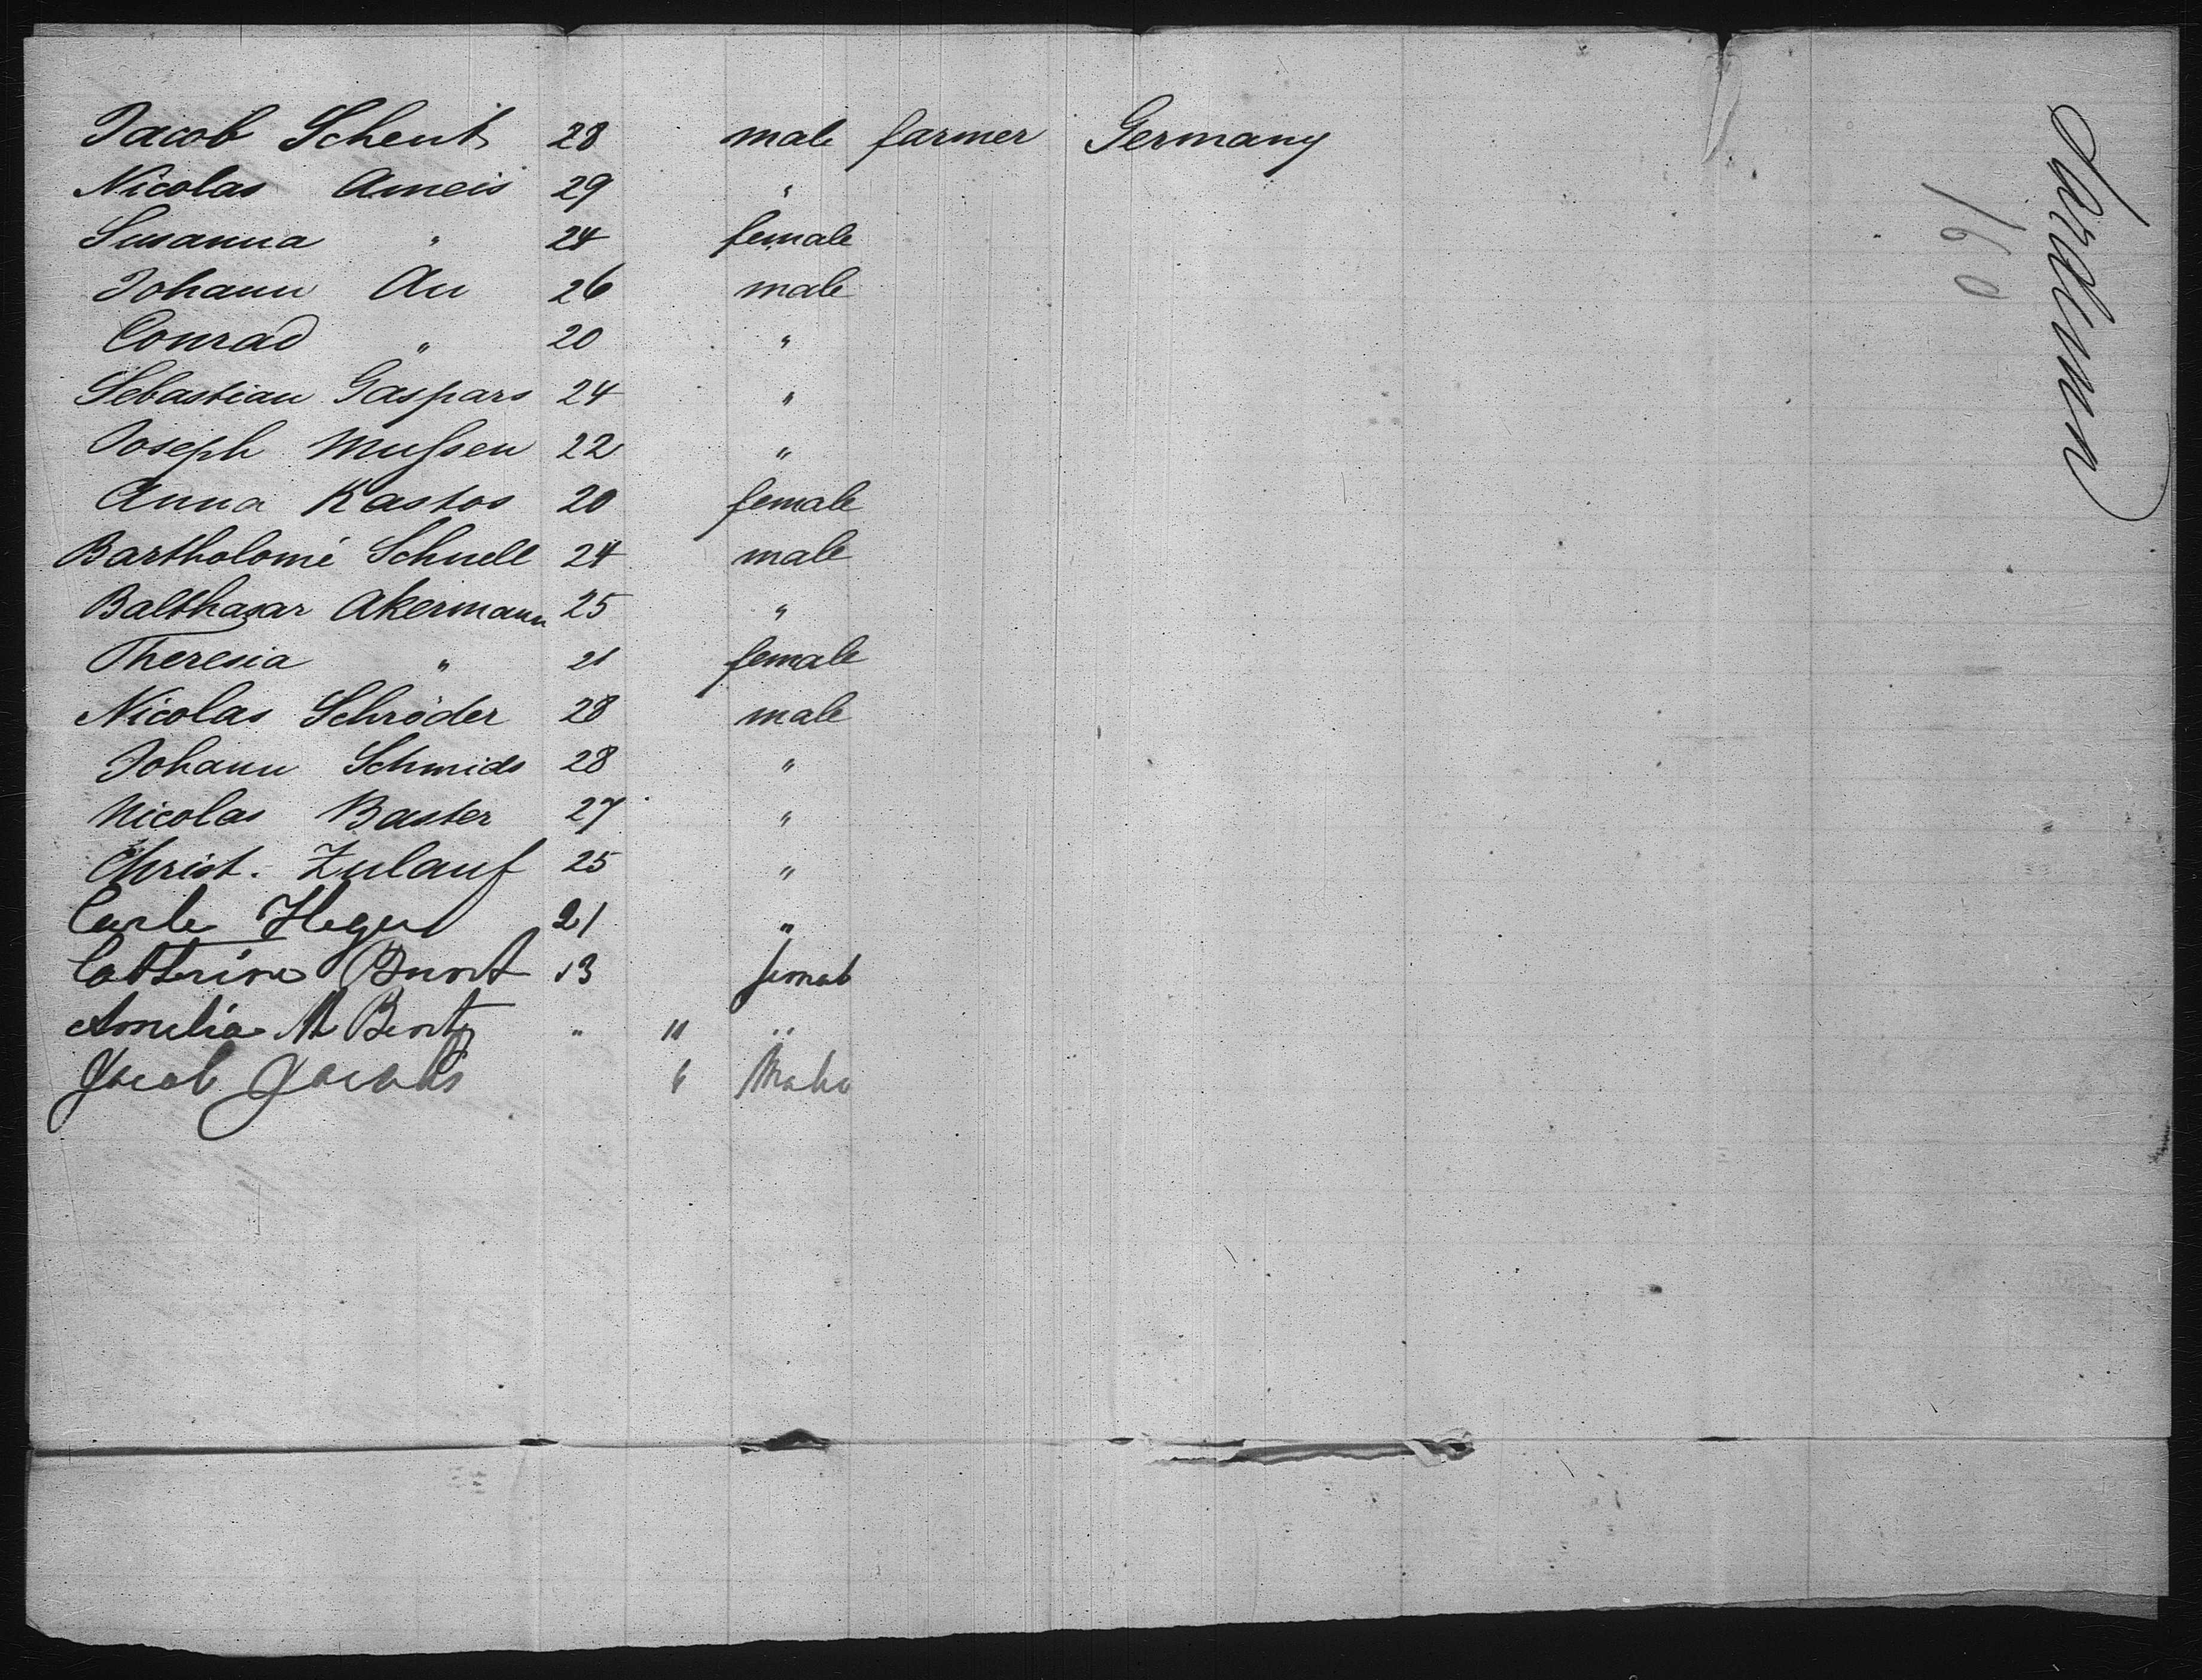 Jacob Scheut 28 male farmer Germany
Nicolas Ameis 29 "
Susanna " 24 female
Johann Au 26 male
Conrad " 20 "
Sebastian Gaspars 24 "
Joseph Mußen 22 "
Anna Kastos 20 female
Bartholomé Schnell 24 male
Balthasar Akermann 25 "
Theresia " 21 female
Nicolas Schröder 28 male
Johann Schmids 28 "
Nicolas Baster 27 "
Christ. Zulauf 25 "
Carle 21 "
Cattrine 13
Amelia M Bentz " 11 "
Jacob Jacobs 6 Male
160